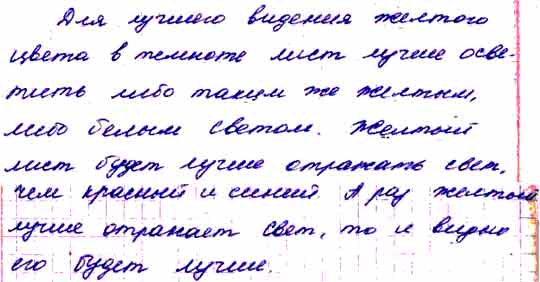 Для лучшего видения желтого
цвета в темноте лист лучше осве-
тить либо таким же желтым,
либо белым светом. Желтый
лист будет лучше отражать свет,
чем красный и синий А раз желтый
лучше отражает свет, то и видно
его будет лучше.